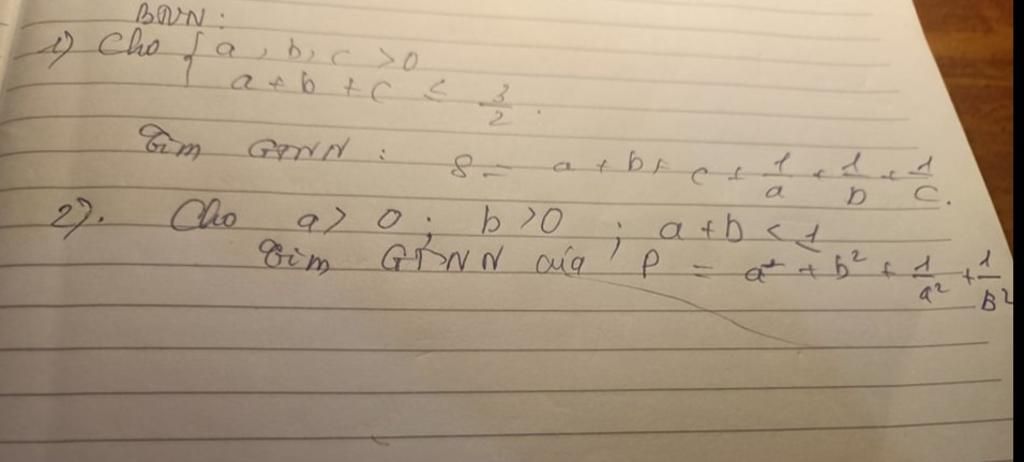 BNN:
1) Cho { a, b, c > 0
a + b + c ≤ 3/2.
Tìm GTNN : S = a + b + c + 1/a + 1/b + 1/c.
2). Cho a > 0 ; b > 0 ; a + b ≤ 1
Tìm GTNN của P = a² + b² + 1/a² + 1/b²